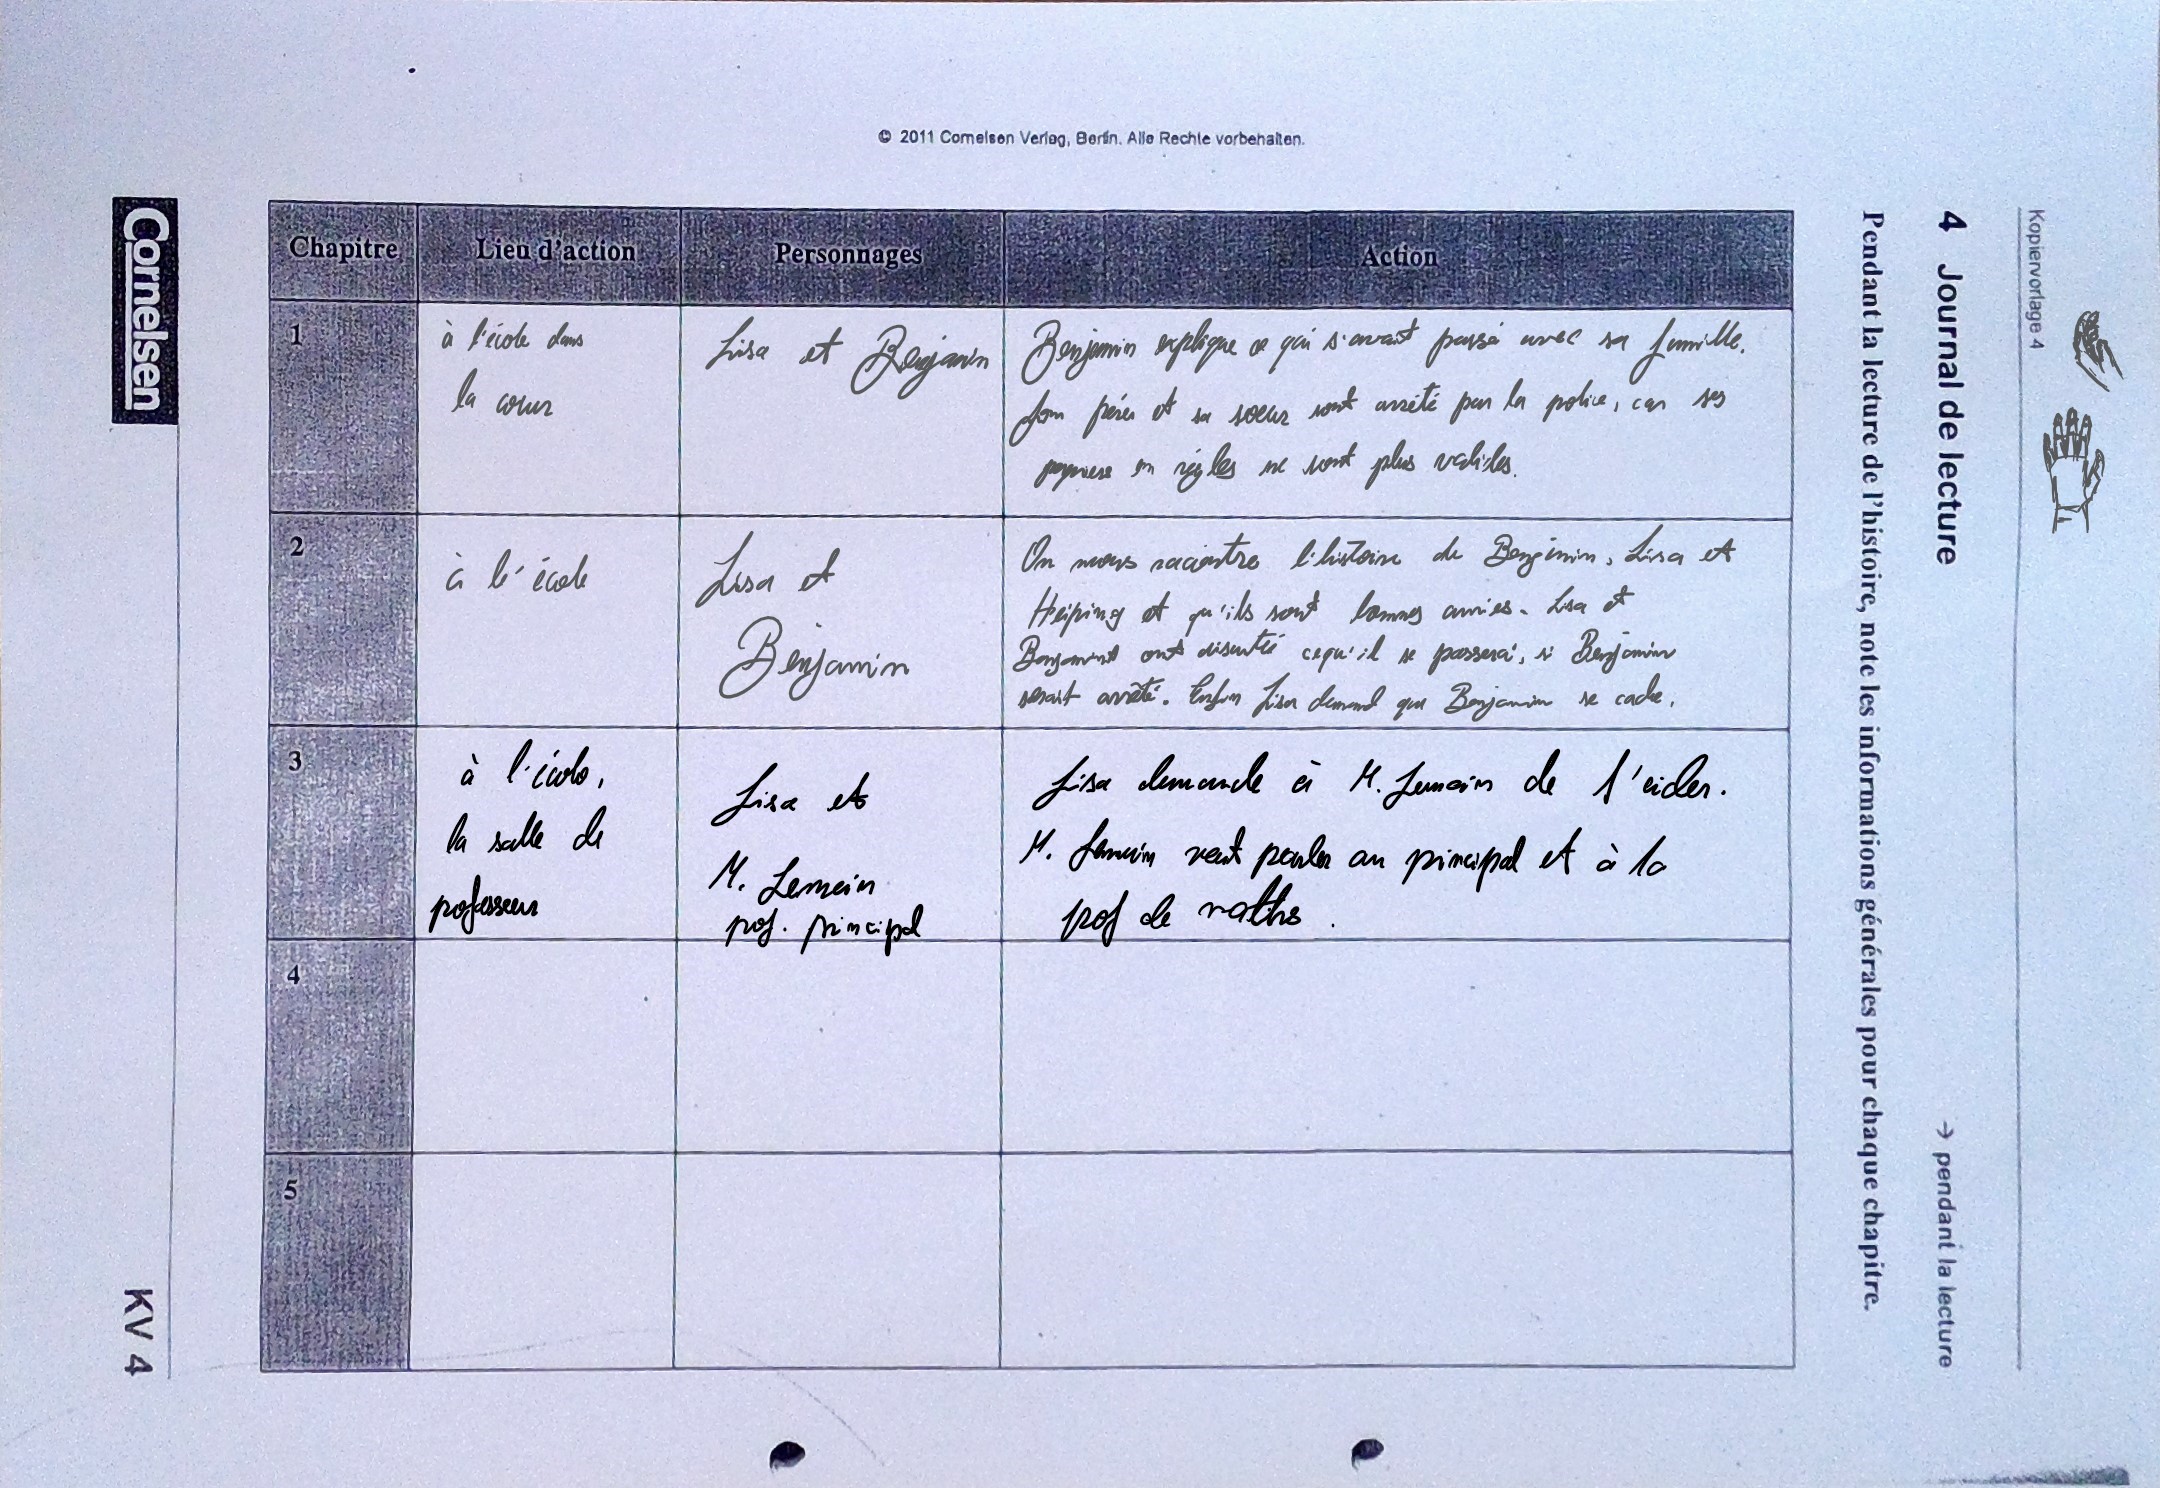 Kopiervorlage 4
4 Journal de lecture
→ pendant la lecture
Pendant la lecture de l'histoire, note les informations générales pour chaque chapitre.
Chapitre
Lieu d'action
Personnages
Action
1
à l'école dans
la cour
Lisa et Benjamin
Benjamin explique ce qui s'avait passé avec sa famille.
Son père et sa soeur sont arrêté par la police, car ses
en règles ne sont plus valides.
2
à l'école
Lisa et
Benjamin
On nous racontre l'histoire de Benjamin, Lisa et
Heiping et qu'ils sont bonnes amies. Lisa et
ont discutté cequ'il se passerai, si Benjamin
serait arrêté. Enfin Lisa demand que Benjamin se cache.
3
à l'école,
la salle de
professeur
Lisa et
M. Lemain
prof. principal
Lisa demande à M. Lemain de l'aider.
M. Lemain veut parler au principal et à la
prof de maths.
4
5
© 2011 Cornelsen Verlag, Berlin. Alle Rechte vorbehalten.
Cornelsen
KV 4